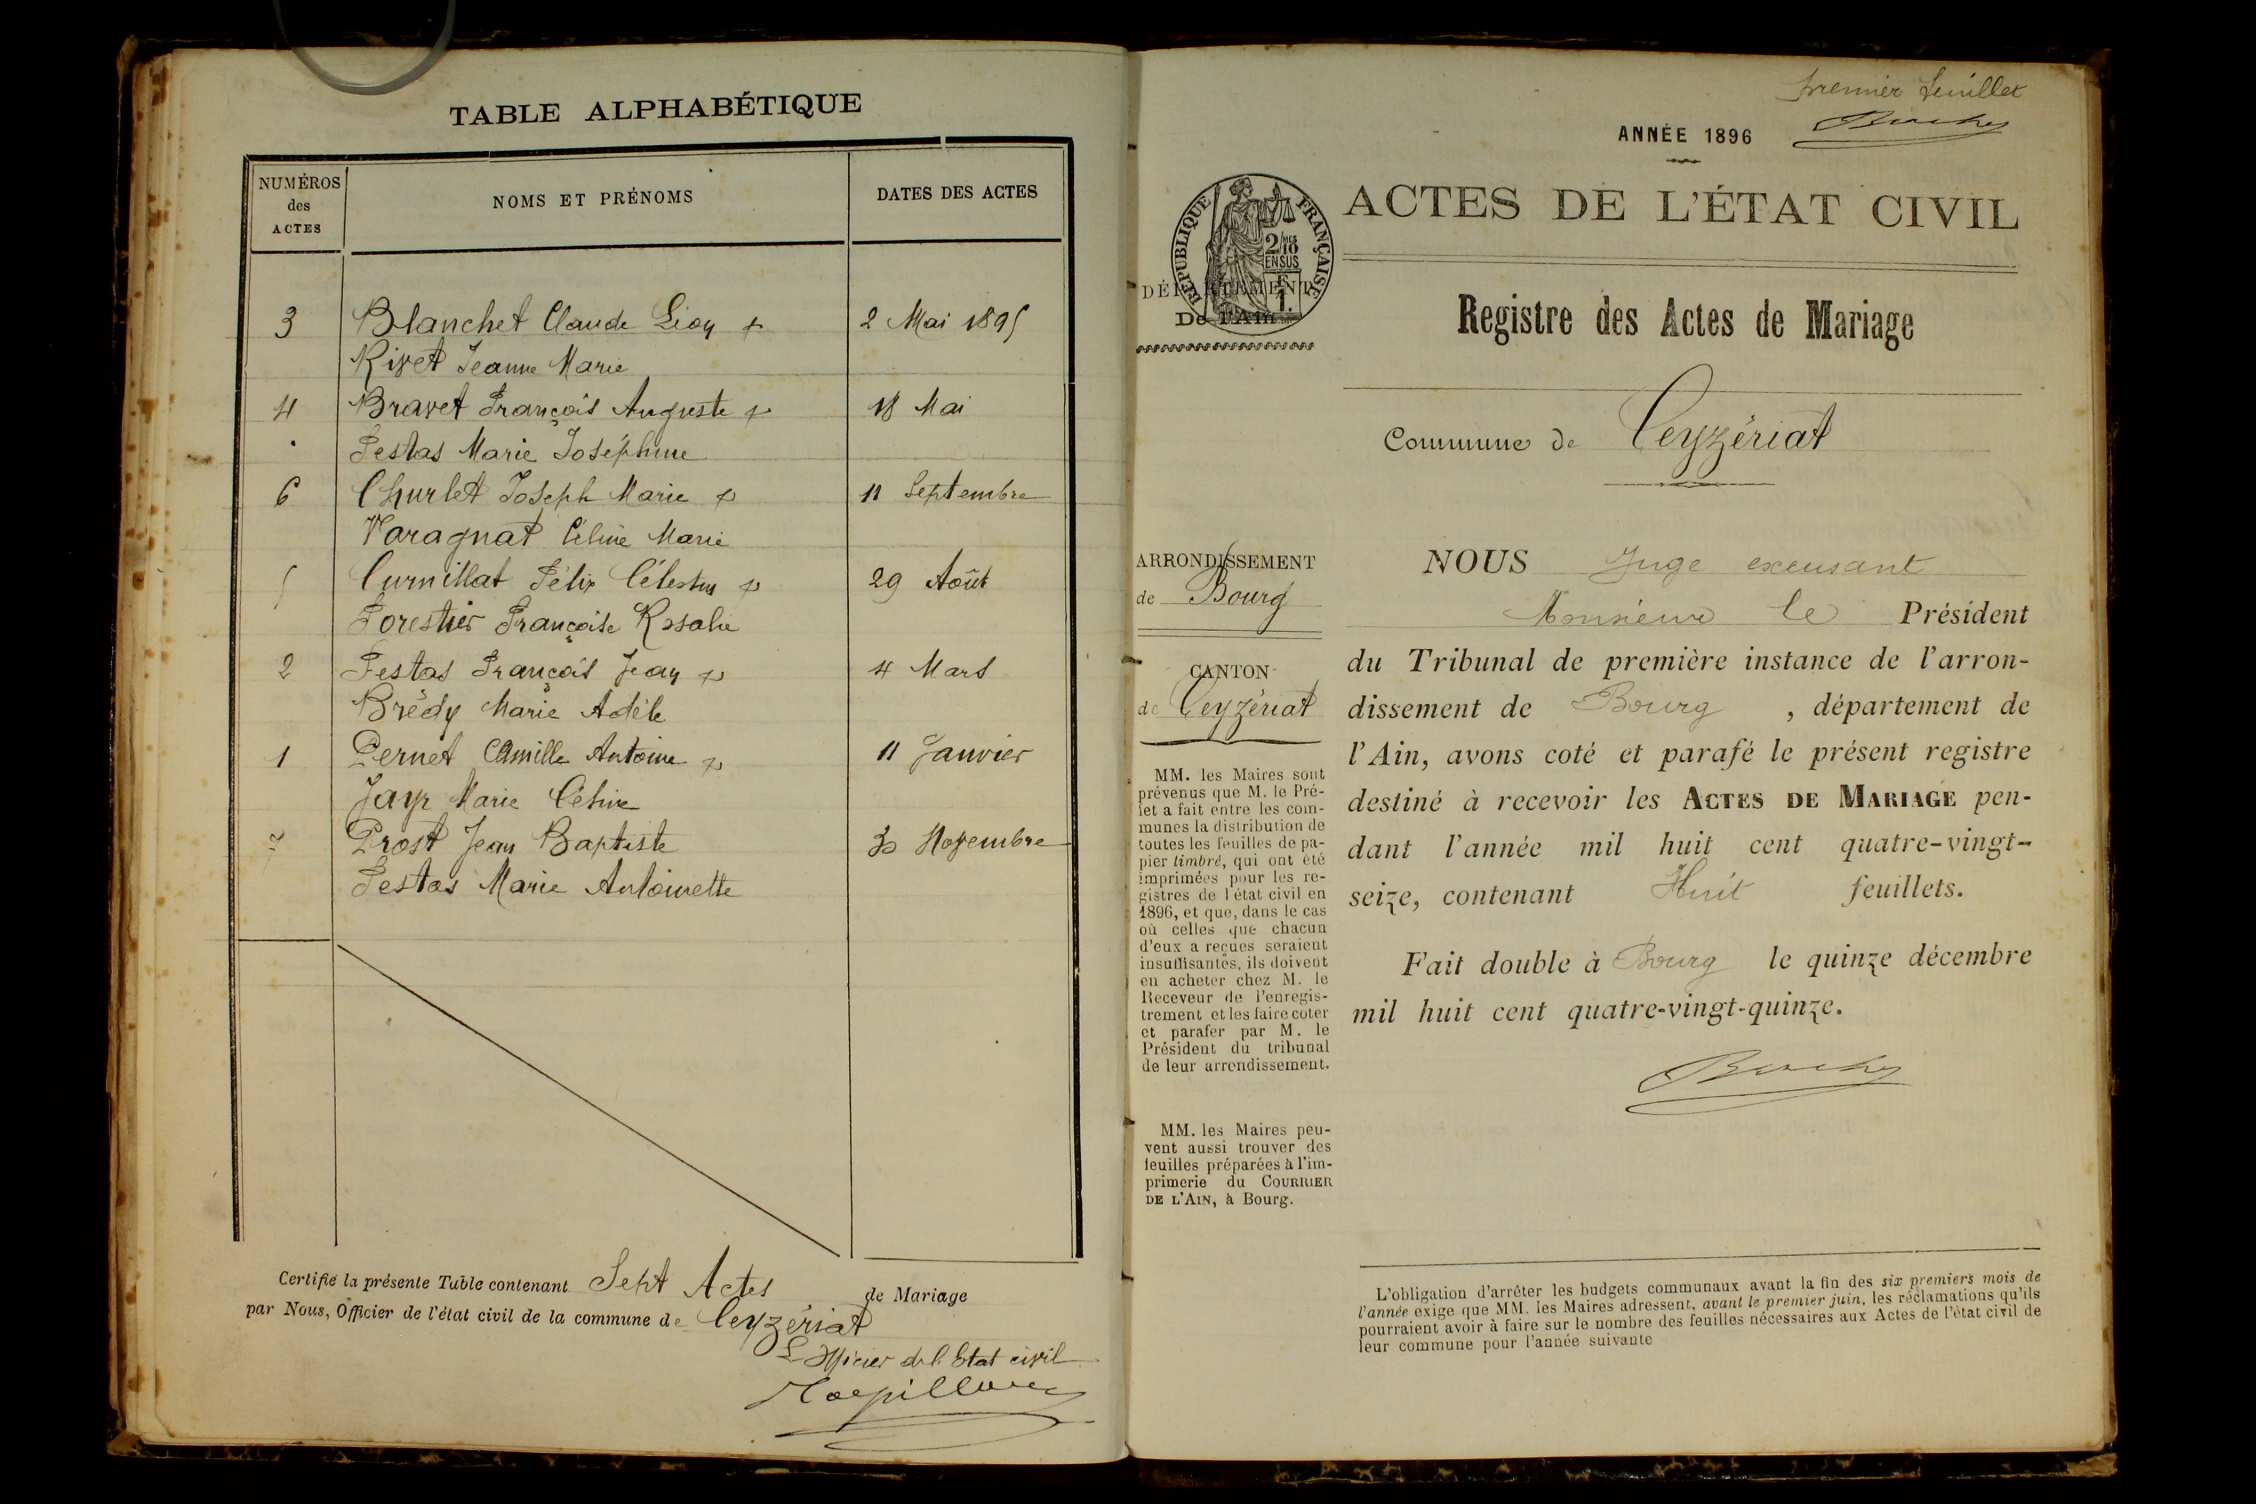 TABLE ALPHABÉTIQUE
NUMÉROS des ACTES
NOMS ET PRÉNOMS
DATES DES ACTES
3 Blanchet Claude Léon 2 Mai 1895
Rivet Jeanne Marie
4 Bravet François Auguste 18 Mai
Festas Marie Joséphine
6 Churlet Joseph Marie 11 Septembre
Varagnat Céline Marie
5 Curnillat Félix Célestin 29 Août
Forestier Françoise Rosalie
2 Festas François Jean 4 Mars
Brédy Marie Adèle
1 Pernet Camille Antoine 11 Janvier
Jayr Marie Céline
7 Prost Jean Baptiste 30 Novembre
Festas Marie Antoinette
Certifié la présente Table contenant Sept Actes de Mariage
par Nous, Officier de l'état civil de la commune de Ceyzériat
L'officier de l'Etat civil
premier feuillet
ANNÉE 1896
ACTES DE L'ÉTAT CIVIL
RÉPUBLIQUE FRANÇAISE
2/10mes
EN SUS
1F
DÉPARTEMENT
De l'Ain
Registre des Actes de Mariage
Commune de Ceyzériat
ARRONDISSEMENT
de Bourg
CANTON
de Ceyzériat
MM. les Maires sont
prévenus que M. le Pré-
fet a fait entre les com-
munes la distribution de
toutes les feuilles de pa-
pier timbré, qui ont été
imprimées pour les re-
gistres de l'état civil en
1896, et que, dans le cas
où celles que chacun
d'eux a reçues seraient
insuffisantes, ils doivent
en acheter chez M. le
Receveur de l'enregis-
trement et les faire coter
et parafer par M. le
Président du tribunal
de leur arrondissement.
MM. les Maires peu-
vent aussi trouver des
feuilles préparées à l'im-
primerie du COURRIER
DE L'AIN, à Bourg.
NOUS Juge excusant
Monsieur le Président
du Tribunal de première instance de l'arron-
dissement de Bourg , département de
l'Ain, avons coté et parafé le présent registre
destiné à recevoir les ACTES DE MARIAGE pen-
dant l'année mil huit cent quatre-vingt-
seize, contenant Huit feuillets.
Fait double à Bourg le quinze décembre
mil huit cent quatre-vingt-quinze.
L'obligation d'arrêter les budgets communaux avant la fin des six premiers mois de
l'année exige que MM. les Maires adressent, avant le premier juin, les réclamations qu'ils
pourraient avoir à faire sur le nombre des feuilles nécessaires aux Actes de l'état civil de
leur commune pour l'année suivante